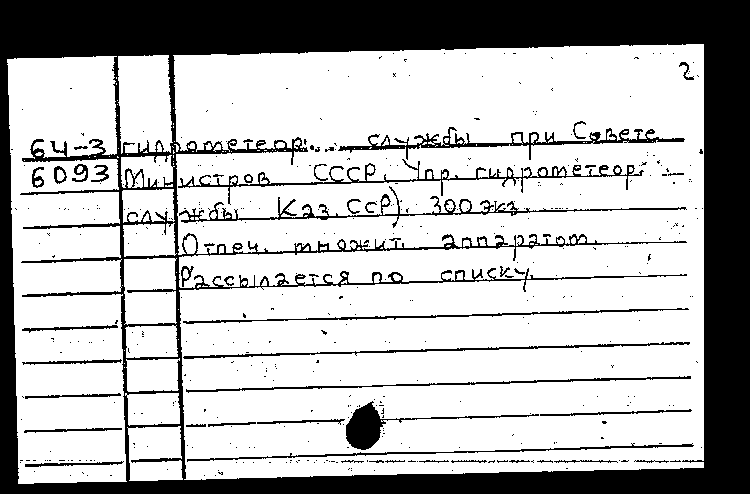 2
64-3 гидрометеор. службы при Совете
6093 Министров СССР. Упр. гидрометеор.
службы Каз.ССР). 300 экз.
Отпеч. множит. аппаратом.
Рассылается по списку.